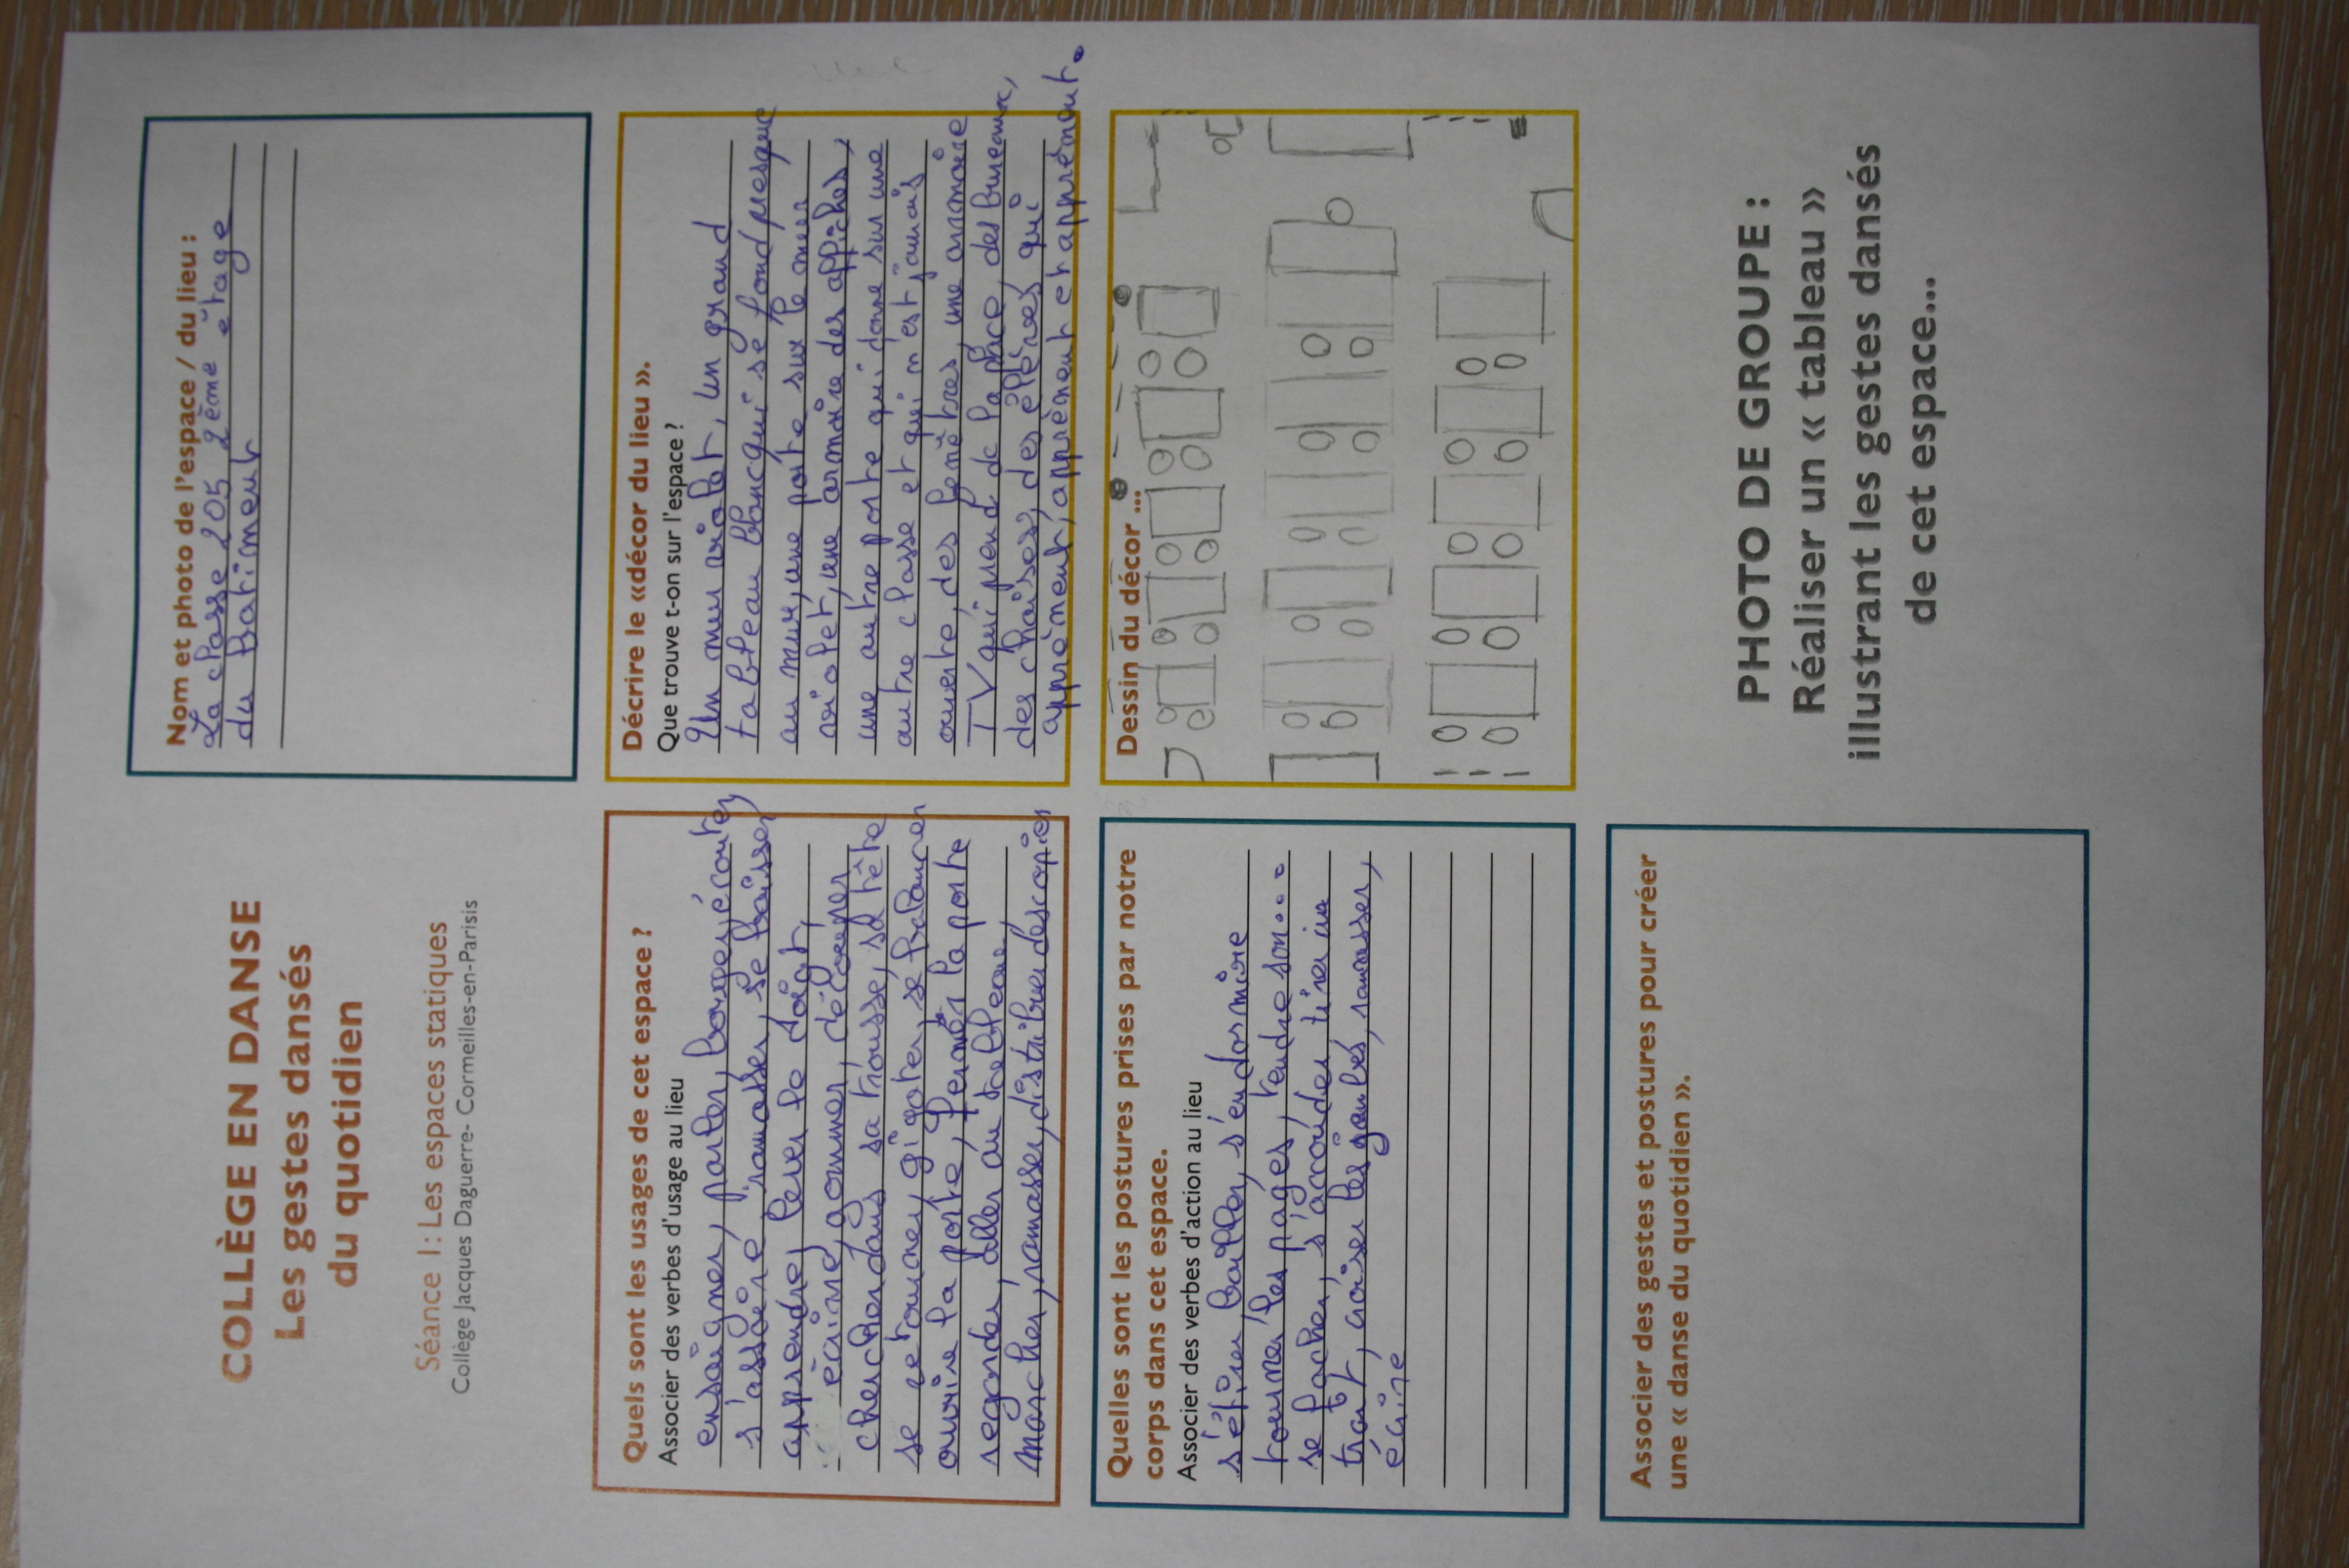 COLLÈGE EN DANSE
Les gestes dansés
du quotidien
Séance 1 : Les espaces statiques
Collège Jacques Daguerre- Cormeilles-en-Parisis
Nom et photo de l'espace / du lieu :
La classe 205 2ème étage
du batiment
Quels sont les usages de cet espace ?
Associer des verbes d'usage au lieu
enseigner, parler, bouger, écouter,
s'asseoire, ramasser, se baisser
apprendre, lever le doigt,
écrire, gommer, découper
chercher dans sa trousse, sa tête
se retourner, gigoter, se balancer
ouvrire la porte, fermer la porte
regarder, aller au tableau,
marcher, ramasser, distribuer des copies
Décrire le «décor du lieu ».
Que trouve t-on sur l'espace ?
Un mur violet, un grand
tableau blanc qui se fond presque
au mur, une porte sur le mur
violet, une armoire des affiches,
une autre porte qui donne sur une
autre classe et qui n'est jamais
ouverte, des fenêtres, une armoire
TV qui prend de la place, des bureaux,
des chaises, des élèves qui
apprènent, apprènent et apprènent.
Quelles sont les postures prises par notre
corps dans cet espace.
Associer des verbes d'action au lieu
s'étirer, bailler, s'endormire
tourner les pages, tendre son...
se facher, s'accouder, tirer un
trait, croiser les jambes, ramasser,
écrire
Dessin du décor ...
Associer des gestes et postures pour créer
une « danse du quotidien ».
PHOTO DE GROUPE :
Réaliser un « tableau »
illustrant les gestes dansés
de cet espace...